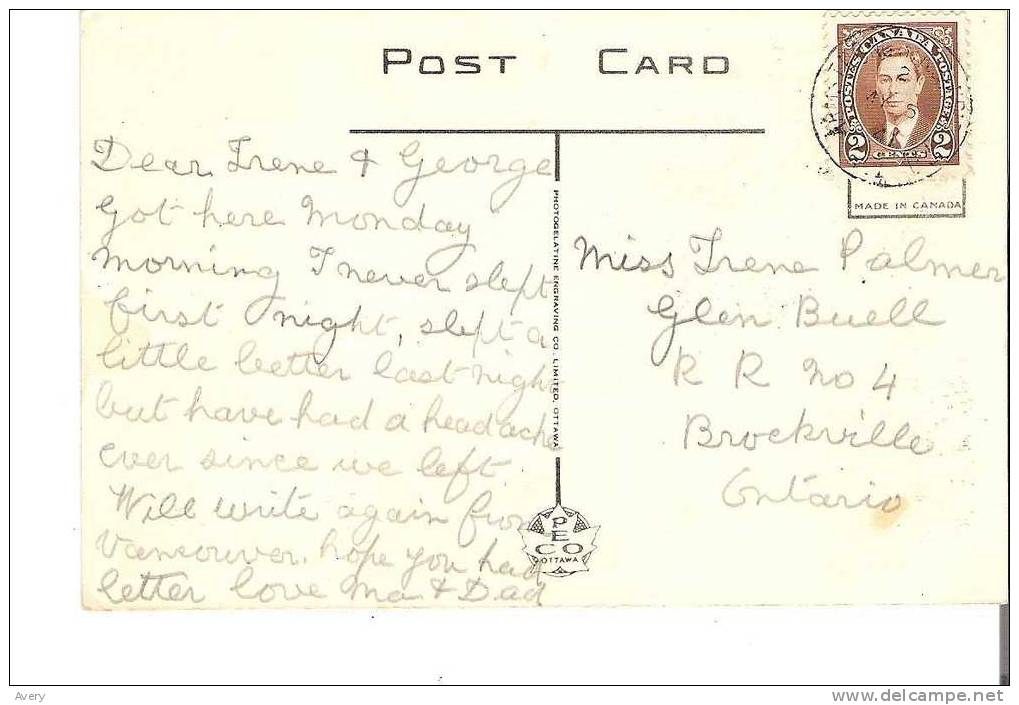 POST CARD
Dear Irene & George
Got here Monday
morning I never slept
first night, slept a
little better last night
but have had a headache
ever since we left
Will write again from
Vancouver. hope you had
letter love Ma & Dad
PHOTOGELATINE ENGRAVING CO., LIMITED, OTTAWA
PECO
OTTAWA
POSTES CANADA POSTAGE
2 CENTS 2
MADE IN CANADA
Miss Irene Palmer
Glen Buell
R R No 4
Brockville
Ontario
Avery
www.delcampe.net